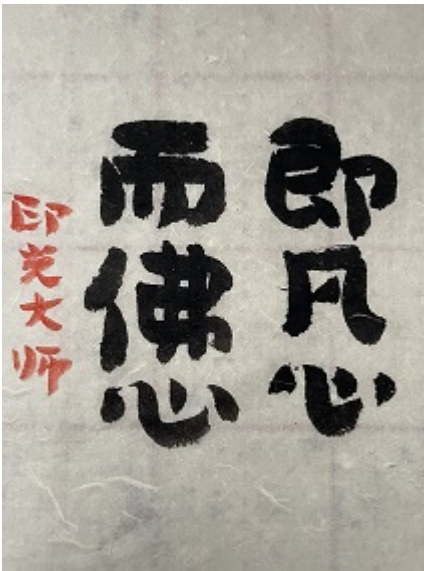 即凡心
而佛心
印光大师